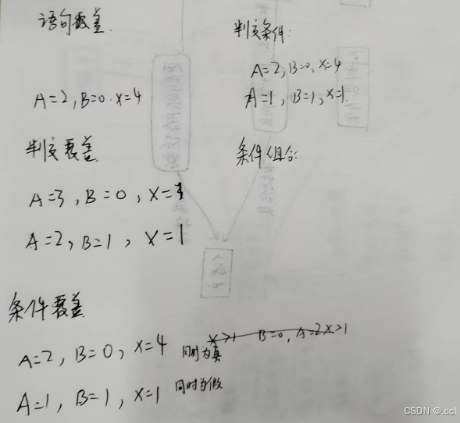 语句覆盖
A=2, B=0. X=4
判定覆盖
A=3, B=0, X=
A=2, B=1, X=1
条件覆盖
A=2, B=0, X=4 同时为真 X>1 B=0, A=2 X>1
A=1, B=1, X=1 同时为假
判定条件:
A=2, B=0, X=4
A=1, B=1, X=1
条件组合:
CSDN @.ccl